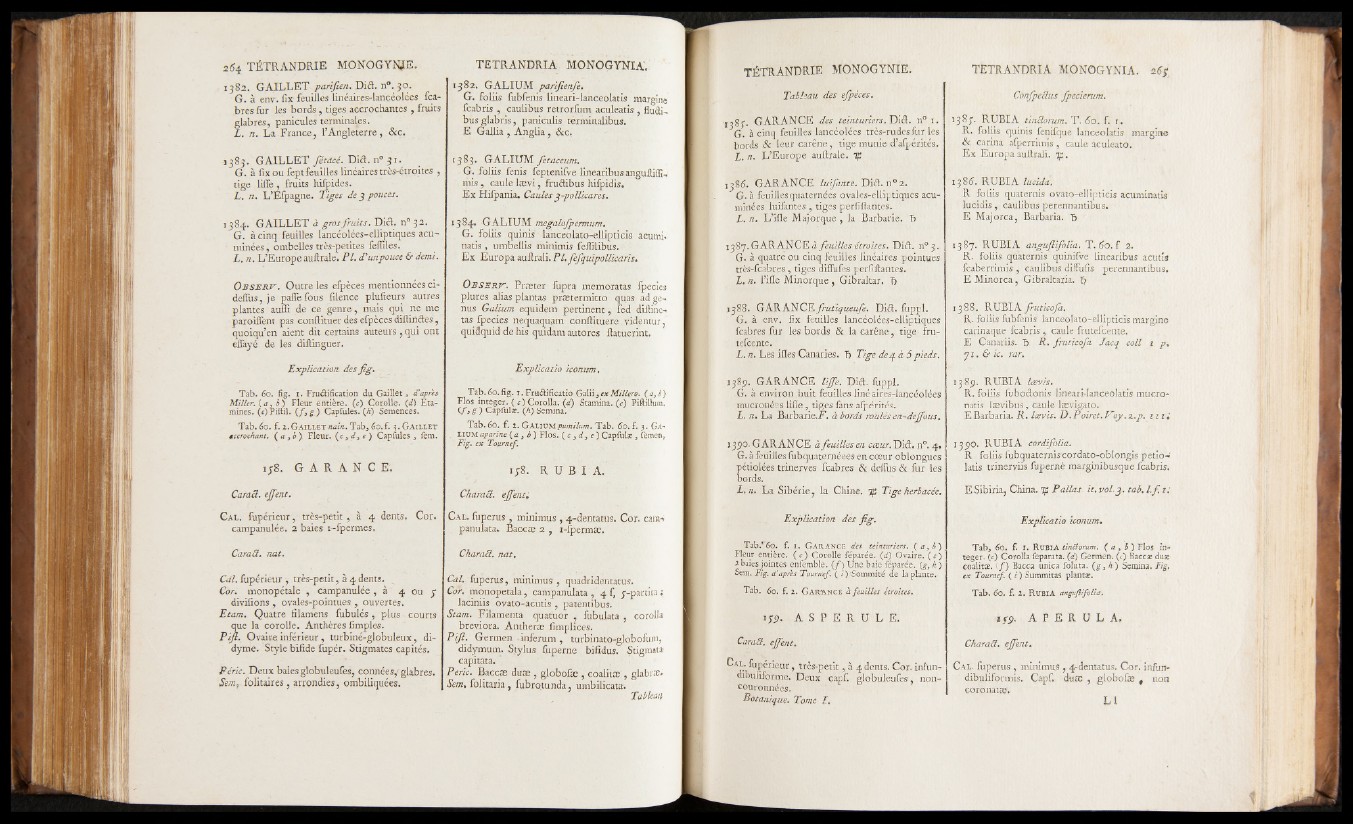 264 TÉTRANDRIE MONOGYNIE.
1382. GAILLET parisien. Dict. n°. 30.
G. à env. six feuilles linéaires-lancéolées sca-
bres sur les bords, tiges accrochantes, fruits
glabres, panicules terminales.
L. n. La France, l'Angleterre, &c.
1383. GAILLET sétacé. Dict. n° 31.
G. à six ou sept feuilles linéaires très-étroites,
tige lisse, fruits hispides.
L. n. L'Espagne. Tiges de 3 pouces.
1384. GAILLET à gros fruits. Dict. n° 32.
G. à cinq feuilles lancéolées-elliptiques acu-
minées, ombelles très-petites sessiles.
L. n. L'Europe australe. Pl. d'un pouce & demi.
OBSERV. Outre les espèces mentionnées ci-
dessus, je passe sous silence plusieurs autres
plantes aussi de ce genre, mais qui ne me
paroissent pas constituer des espèces distinctes,
quoiqu'en aient dit certains auteurs, qui ont
essayé de les distinguer.
Explication des fig.
Tab. 60. fig. 1. Fructification du Gaillet, d'après
Miller. (a, b) Fleur entière. (c) Corolle. (d) Eta-
mines. (e) Pistil. (f, g) Capsules. (h) Semences.
Tab. 60. f. 2. GAILLET nain. Tab. 60. f. 3. GAILLET
accrochant. (a, b) Fleur. (c, d, e) Capsules, sem.
158. GARANCE.
Caract. essent.
CAL. supérieur, très-petit, à 4 dents. Cor.
campanulée. 2 baies 1-spermes.
Caract. nat.
Cal. supérieur, très-petit, à 4 dents.
Cor. monopétale, campanulée, à 4 ou 5
divisions, ovales-pointues, ouvertes.
Etam. Quatre filamens subulés, plus courts
que la corolle. Anthères simples.
Pist. Ovaire inférieur, turbiné-globuleux, di-
dyme. Style bifide supér. Stigmates capités.
Péric. Deux baies globuleuses, connées, glabres.
Sem. solitaires, arrondies, ombiliquées.
TETRANDRIA MONOGYNIA.
1382. GALIUM parisiense.
G. foliis subsenis lineari-lanceolatis margine
scabris, caulibus retrorsum aculeatis, fructi-
bus glabris, paniculis terminalibus.
E Gallia, Anglia, &c.
1383. GALIUM setaceum.
G. foliis senis septenisve linearibus angustissi-
mis, caule lævi, fructibus hispidis.
Ex Hispania. Caules 3-pollicares.
1384. GALIUM megalospermum.
G. foliis quinis lanceolato-ellipticis acumi-
natis, umbellis minimis sessilibus.
Ex Europa australi. Pl. sesquipollicaris.
OBSERV. Præter supra memoratas species
plures alias plantas prætermitto quas ad ge-
nus Galium equidem pertinent, sed distinc-
tas species nequaquam constituere videntur,
quidquid de his quidam autores statuerint.
Explicatio iconum.
Tab. 60. fig. 1. Fructificatio Galii, ex Millero. (a, b)
Flos integer. (c) Corolla. (d) Stamina. (e) Pistillum.
(f, g) Capsulæ. (h) Semina.
Tab. 60. f. 2. GALIUM pumilum. Tab. 60. f. 3. GA-
LIUM aparine (a, b) Flos. (c, d, e) Capsulæ, semen,
Fig. ex Tournef.
158. RUBIA.
Charact. essent.
CAL. superus, minimus, 4-dentatus. Cor. cam-
panulata. Baccæ 2, 1-spermæ.
Charact. nat.
Cal. superus, minimus, quadridentatus.
Cor. monopetala, campanulata, 4 s, 5-partita;
laciniis ovato-acutis, patentibus.
Stam. Filamenta quatuor, subulata, corolla
breviora. Antheræ simplices.
Pist. Germen inferum, turbinato-globosum,
didymum. Stylus superne bifidus. Stigmata
capitata.
Peric. Baccæ duæ, globosæ, coalitæ, glabræ.
Sem. solitaria, subrotunda, umbilicata.
Tableau
TÉTRANDRIE MONOGYNIE.
Tableau des espèces.
1385. GARANCE des teinturiers. Dict. n° 1.
G. à cinq feuilles lancéolées très-rudes sur les
bords & leur carène, tige munie d'aspérités.
L. n. L'Europe australe. ♃
1386. GARANCE luisante. Dict. n° 2.
G. à feuilles quaternées ovales-elliptiques acu-
minées luisantes, tiges persistantes.
L. n. L'isle Majorque, la Barbarie. ♄
1387. GARANCE à feuilles étroites. Dict. n° 3.
G. à quatre ou cinq feuilles linéaires pointues
très-scabres, tiges diffuses persistantes.
L. n. l'isle Minorque, Gibraltar. ♄
1388. GARANCE frutiqueuse. Dict. suppl.
G. à env. six feuilles lancéolées-elliptiques
scabres sur les bords & la carêne, tige fru-
tescente.
L. n. Les isles Canaries. ♄ Tige de 4 à 5 pieds.
1389. GARANCE lisse. Dict. suppl.
G. à environ huit feuilles linéaires-lancéolées
mucronées lisse, tiges sans aspérités.
L. n. La Barbarie. F. à bords roulés en-dessous.
1390. GARANCE à feuilles en cœur. Dict. n°. 4.
G. à feuilles subquaternées en cœur oblongues
pétiolées trinerves scabres & dessus & sur les
bords.
L. n. La Sibérie, la Chine. ♃ Tige herbacée.
Explication des fig.
Tab. 60. f. 1. GARANCE des teinturiers. (a, b)
Fleur entière. (c) Corolle séparée. (d) Ovaire. (e)
2 baies jointes ensemble. (f) Une baie séparée. (g, h)
Sem. Fig. d'après Tournef. (i) Sommité de la plante.
Tab. 60. f. 2. GARANCE à feuilles étroites.
159. ASPERULE.
Caract. essent.
CAL. supérieur, très-petit, à 4 dents. Cor. infun-
dibuliforme. Deux caps. globuleuses, non-
couronnées.
Botanique. Tome I.
TETRANDRIA MONOGYNIA. 265
Conspectus specierum.
1385. RUBIA tinctorum. T. 60. f. 1.
R. foliis quinis senisque lanceolatis margine
& carina asperrimis, caule aculeato.
Ex Europa australi. ♃.
1386. RUBIA lucida.
R foliis quaternis ovato-ellipticis acuminatis
lucidis, caulibus perennantibus.
E Majorca, Barbaria. ♄
1387. RUBIA angustifolia. T. 60. f 2.
R. foliis quaternis quinisve linearibus acutis
scaberrimis, caulibus diffusis perennantibus.
E Minorca, Gibraltaria. ♄
1388. RUBIA fruticosa.
R. foliis subsenis lanceolato-ellipticis margine
carinaque scabris, caule frutescente.
E Canariis. ♄ R. fruticosa Jacq coll 1 p.
71. & ic. rar.
1389. RUBIA lævis.
R. foliis suboctonis lineari-lanceolatis mucro-
natis lævibus, caule lævigato.
E Barbaria. R. lævis. D. Poiret. Voy. 2. p. 111.
1390. RUBIA cordifolia.
R foliis subquaternis cordato-oblongis petio-
latis trinerviis superné marginibusque scabris.
E Sibiria, China. ♃ Pallas it. vol. 3. tab. l. f. 1.
Explicatio iconum.
Tab, 60. f. 1. RUBIA tinctorum. (a, b) Flos in-
teger. (c) Corolla separata. (d) Germen. (e) Baccæ duæ
coalitæ. (f) Bacca unica soluta. (g, h) Semina. Fig.
ex Tournef. (i) Summitas plantæ.
Tab. 60. f. 2. RUBIA angustifolia.
159. APERULA.
Charact. essent.
CAL. superus, minimus, 4-dentatus. Cor. infun-
dibuliformis. Caps. duæ, globosæ, non
coronatæ.
Ll